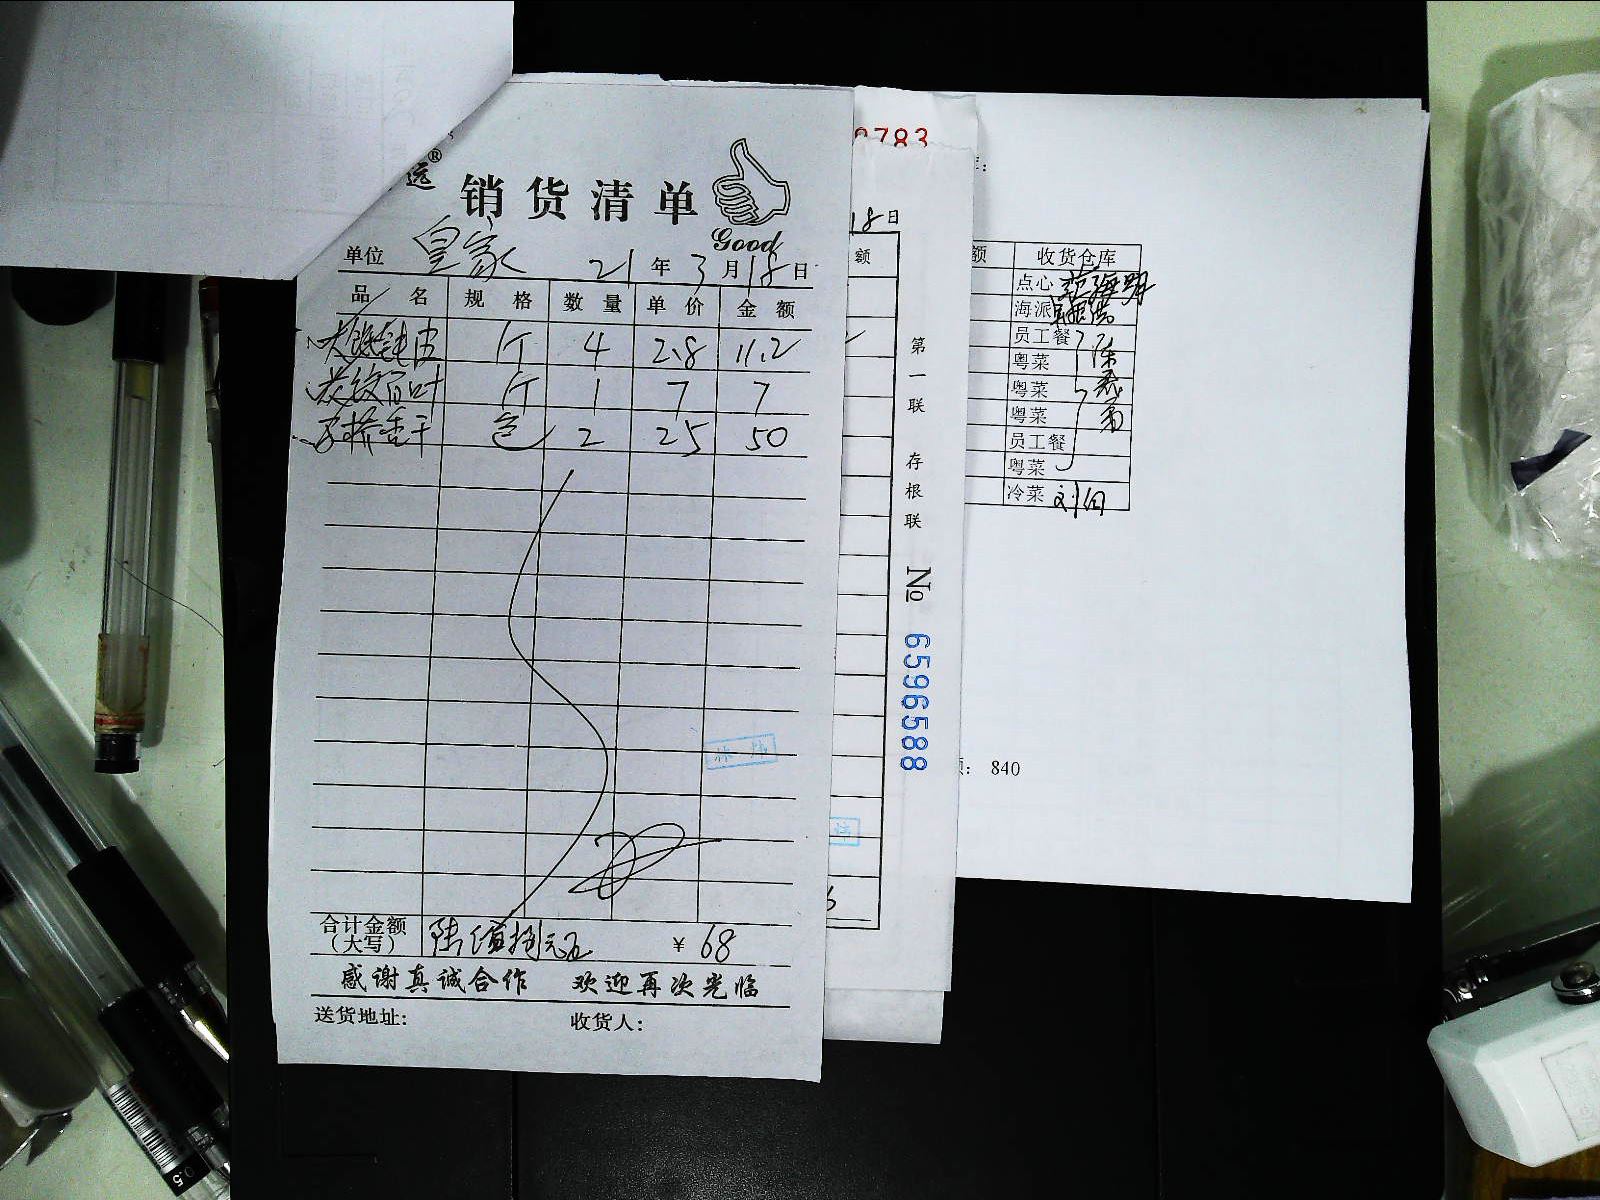 远®
销货清单
Good
单位 皇家 21年3月18日
品名 规格 数量 单价 金额
大馄饨皮 斤 4 2.8 11.2
斤 1 7 7
香干 包 2 25 50
合计金额（大写） 陆拾捌元正 ¥ 68
感谢真诚合作 欢迎再次光临
送货地址： 收货人：
0783
18日
额
第一联 存根联 № 6596588
额 收货仓库
点心
海派
员工餐
粤菜
粤菜
粤菜
员工餐
粤菜
冷菜
：840
0.5